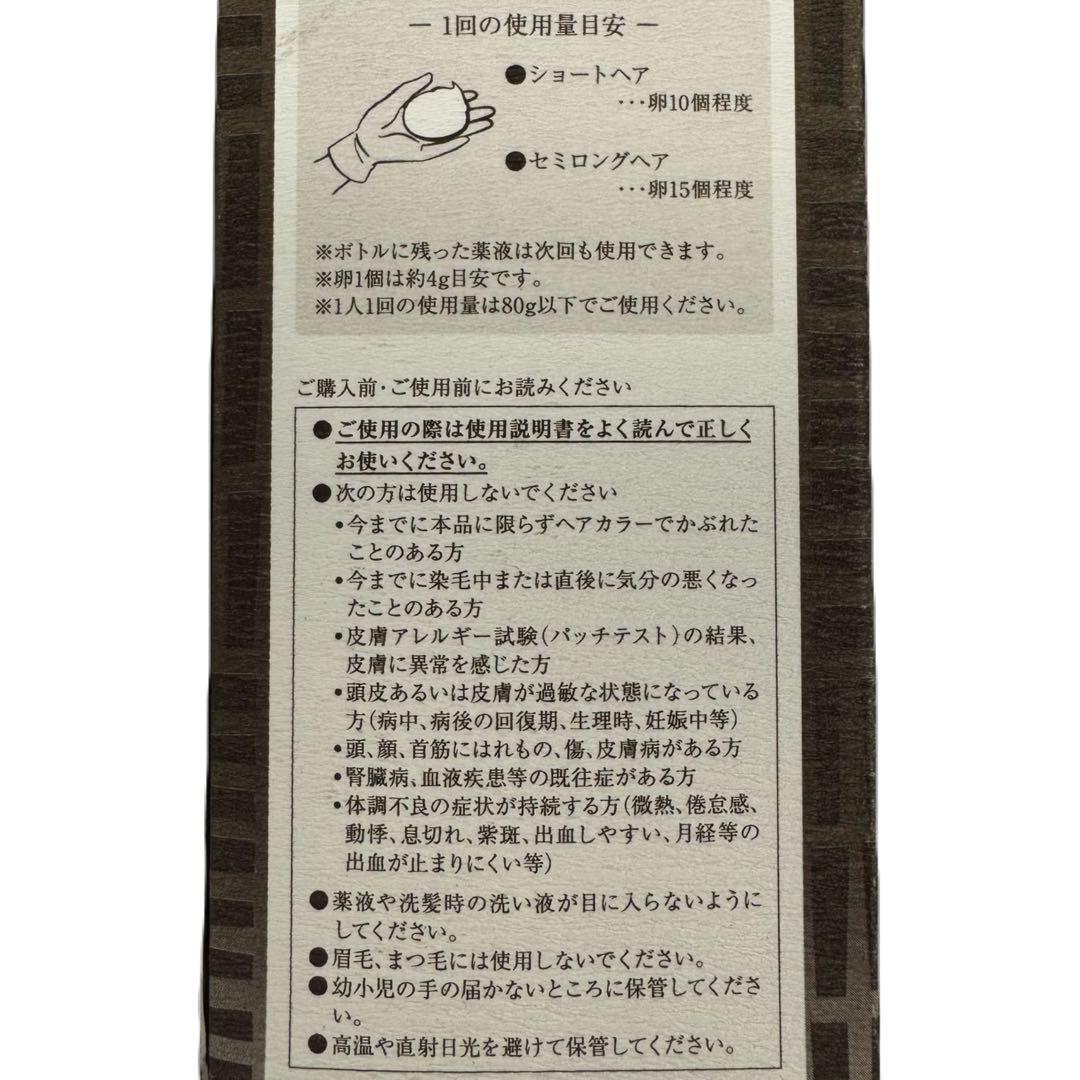 ― 1回の使用量目安 ―
●ショートヘア
…卵10個程度
●セミロングヘア
…卵15個程度
※ボトルに残った薬液は次回も使用できます。
※卵1個は約4g目安です。
※1人1回の使用量は80g以下でご使用ください。
ご購入前・ご使用前にお読みください
●ご使用の際は使用説明書をよく読んで正しく
お使いください。
●次の方は使用しないでください
•今までに本品に限らずヘアカラーでかぶれた
ことのある方
•今までに染毛中または直後に気分の悪くなっ
たことのある方
•皮膚アレルギー試験(パッチテスト)の結果、
皮膚に異常を感じた方
•頭皮あるいは皮膚が過敏な状態になっている
方(病中、病後の回復期、生理時、妊娠中等)
•頭、顔、首筋にはれもの、傷、皮膚病がある方
•腎臓病、血液疾患等の既往症がある方
•体調不良の症状が持続する方(微熱、倦怠感、
動悸、息切れ、紫斑、出血しやすい、月経等の
出血が止まりにくい等)
●薬液や洗髪時の洗い液が目に入らないように
してください。
●眉毛、まつ毛には使用しないでください。
●幼小児の手の届かないところに保管してくださ
い。
●高温や直射日光を避けて保管してください。